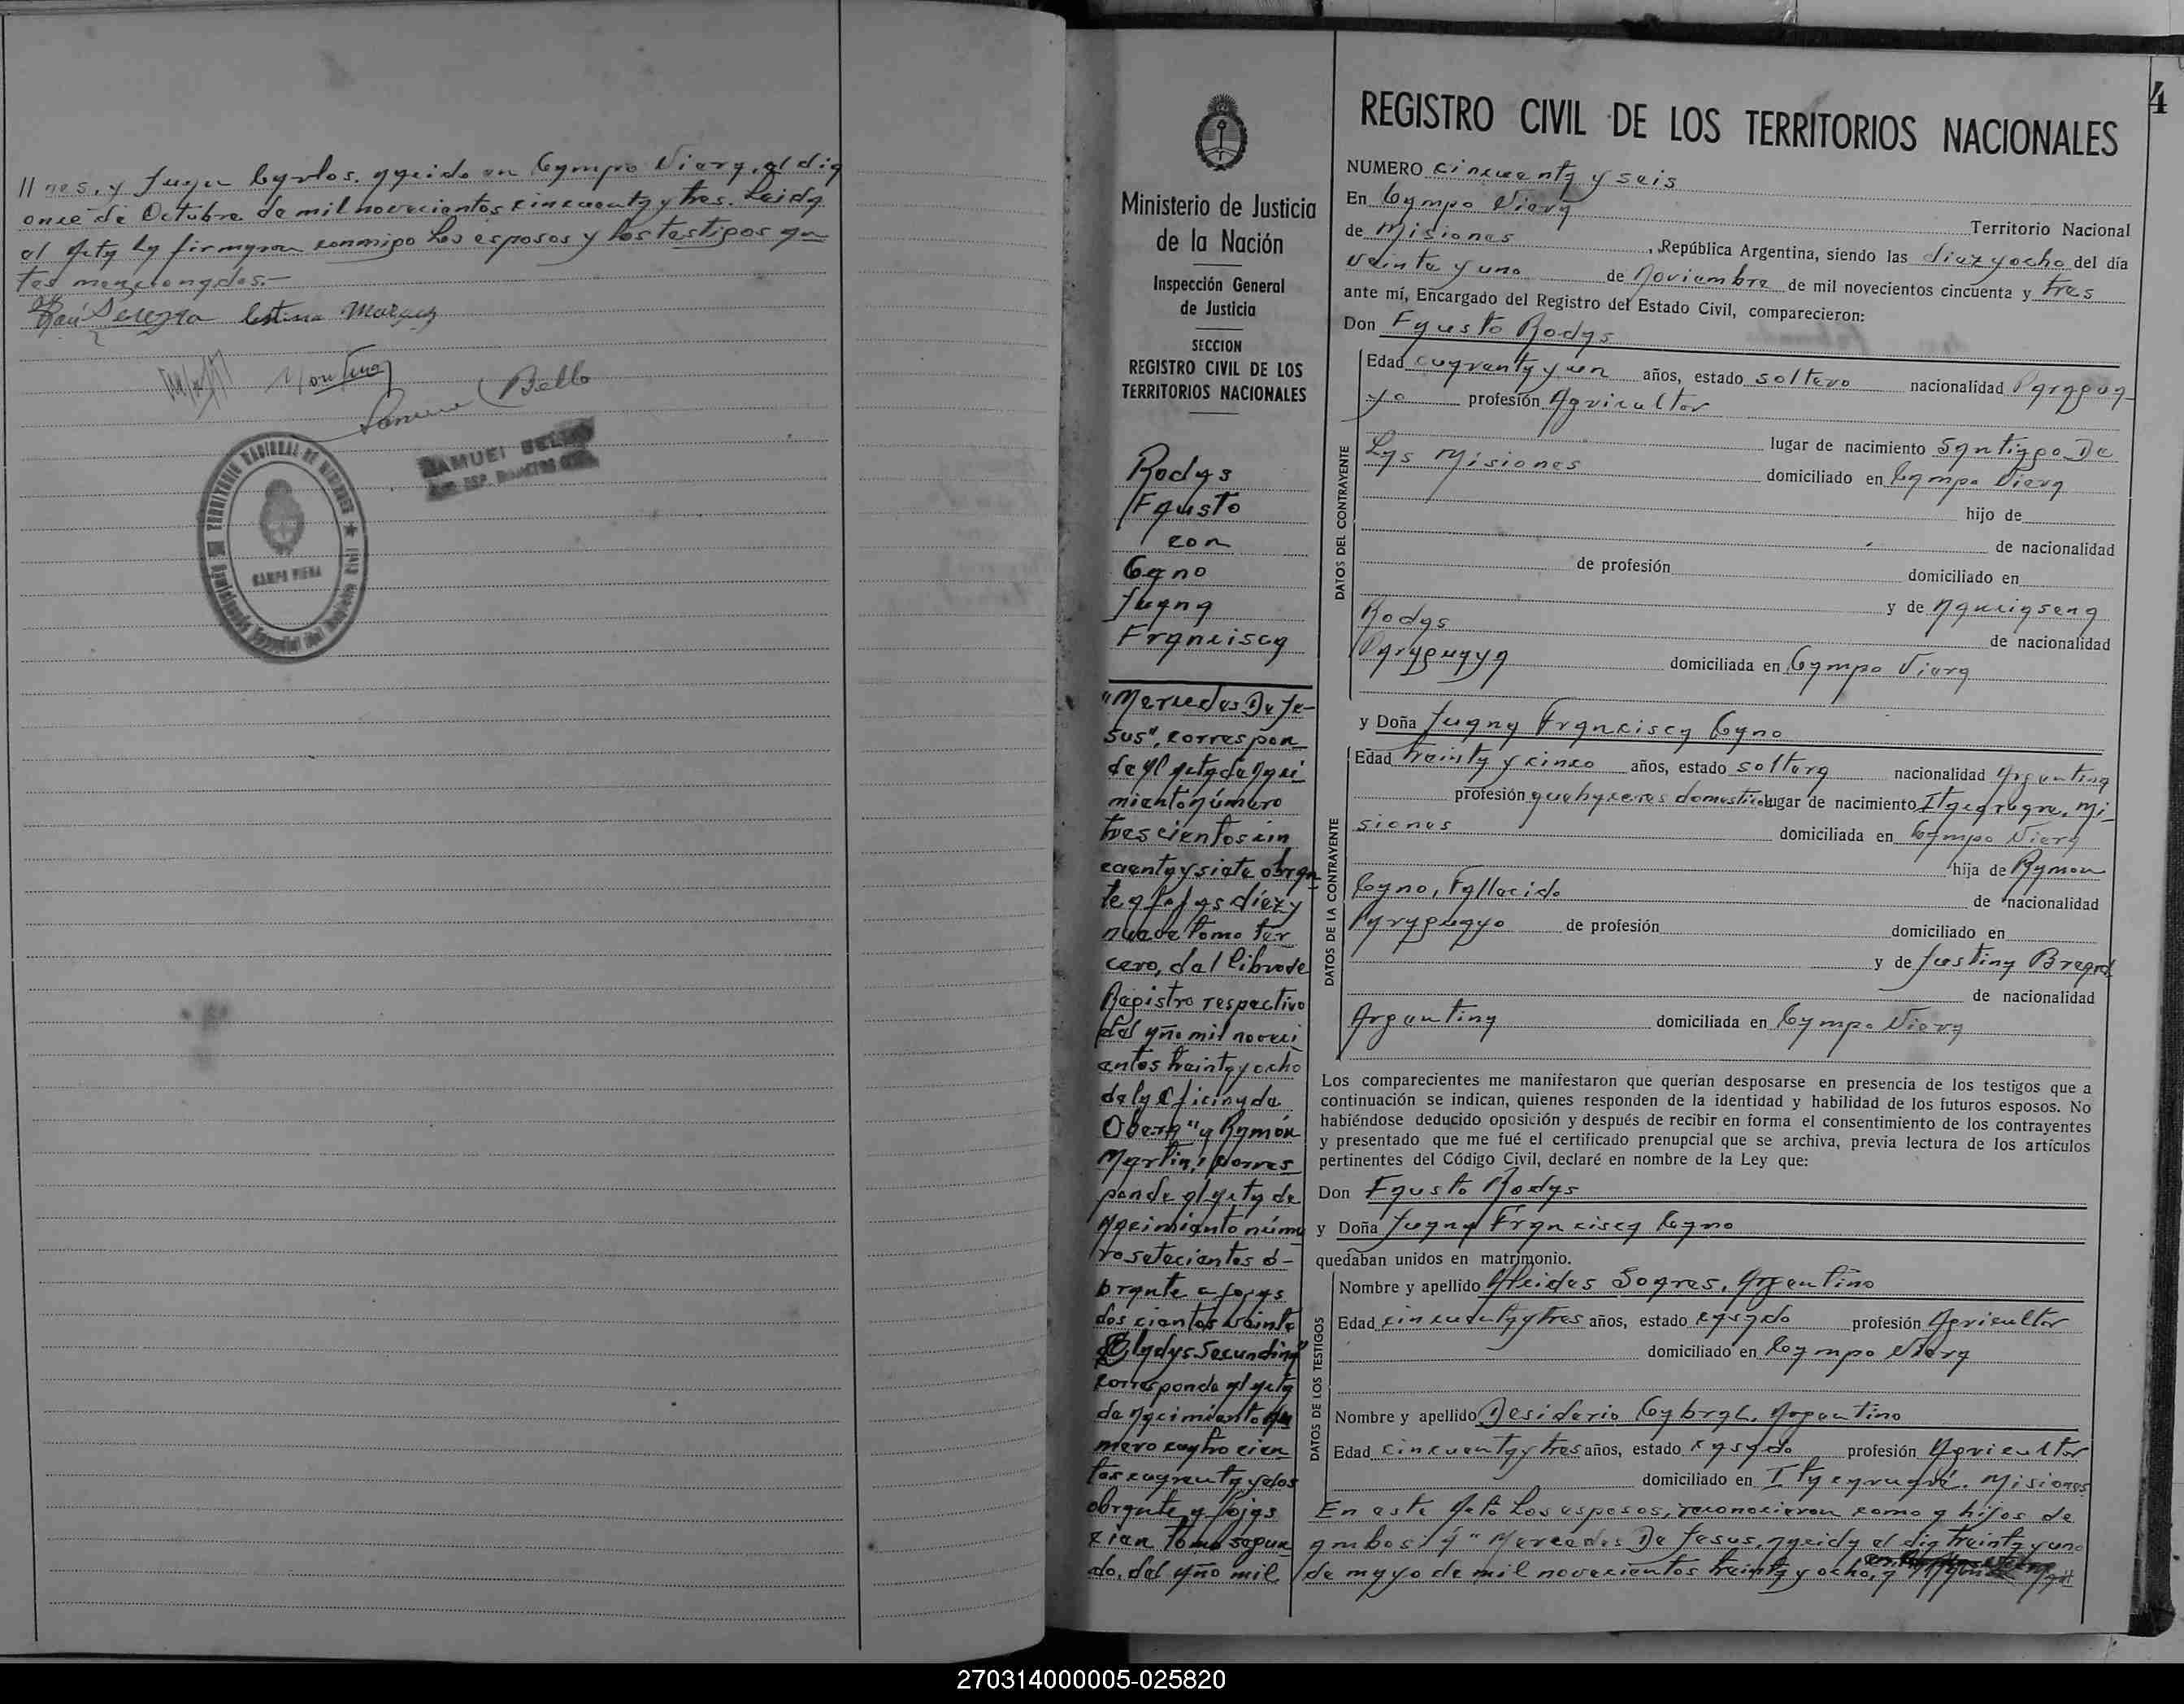 nes, y Juan Carlos, nacido en Campo Viera, el día
once de Octubre de mil novecientos cincuenta y tres. Leida
el Acta la firmaron conmigo los esposos y los testigos an
tes mencionados.-
Montiel
Samuel Bello
SAMUEL BELLO
CAMPO VIERA
4
REGISTRO CIVIL DE LOS TERRITORIOS NACIONALES
Ministerio de Justicia
de la Nación
Inspección General
de Justicia
SECCION
REGISTRO CIVIL DE LOS
TERRITORIOS NACIONALES
Rodas
Fausto
con
Cano
Juana
Francisca
"Mercedes De Je-
sus", correspon
de al acta de naci
miento número
trescientos cin
cuenta y siete obran
te a fojas diez y
nueve tomo ter
cero, del libro de
Registro respectivo
del año mil noveci
entos treinta y ocho
de la Oficina de
Obera" y Ramón
Martin, corres
ponde al acta de
nacimiento núme
ro setecientos o-
brante a fojas
doscientos veinte
Gladys Secundina"
corresponde al acta
de nacimiento nu
mero cuatrocien
tos cuarenta y dos
obrante a fojas
cien tomo segun
do, del año mil
NUMERO cincuenta y seis
En Campo Viera Territorio Nacional
de Misiones, República Argentina, siendo las diez y ocho del día
veinte y uno de Noviembre de mil novecientos cincuenta y tres
ante mí, Encargado del Registro del Estado Civil, comparecieron:
Don Fausto Rodas
DATOS DEL CONTRAYENTE
Edad cuarenta y un años, estado soltero nacionalidad Paragua-
yo profesión Agricultor
lugar de nacimiento Santiago De
Las Misiones domiciliado en Campo Viera
hijo de
de nacionalidad
de profesión domiciliado en
y de
Rodas de nacionalidad
Paraguaya domiciliada en Campo Viera
y Doña Juana Francisca Cano
DATOS DE LA CONTRAYENTE
Edad treinta y cinco años, estado soltera nacionalidad Argentina
profesión quehaceres domesticos lugar de nacimiento Itacaruare, Mi-
siones domiciliada en Campo Viera
hija de Ramon
Cano, Fallecido de nacionalidad
Paraguayo de profesión domiciliado en
y de Justina
de nacionalidad
Argentina domiciliada en Campo Viera
Los comparecientes me manifestaron que querían desposarse en presencia de los testigos que a
continuación se indican, quienes responden de la identidad y habilidad de los futuros esposos. No
habiéndose deducido oposición y después de recibir en forma el consentimiento de los contrayentes
y presentado que me fué el certificado prenupcial que se archiva, previa lectura de los artículos
pertinentes del Código Civil, declaré en nombre de la Ley que:
Don Fausto Rodas
y Doña Juana Francisca Cano
quedaban unidos en matrimonio.
DATOS DE LOS TESTIGOS
Nombre y apellido Alcides Soares, Argentino
Edad cincuenta y tres años, estado casado profesión Agricultor
domiciliado en Campo Viera
Nombre y apellido Desiderio Cabral, Argentino
Edad cincuenta y tres años, estado casado profesión Agricultor
domiciliado en Itacaruaré. Misiones
En este Acto los esposos, reconocieron como a hijos de
ambos: á "Mercedes De Jesus, nacida el dia treinta y uno
de mayo de mil novecientos treinta y ocho,
270314000005-025820